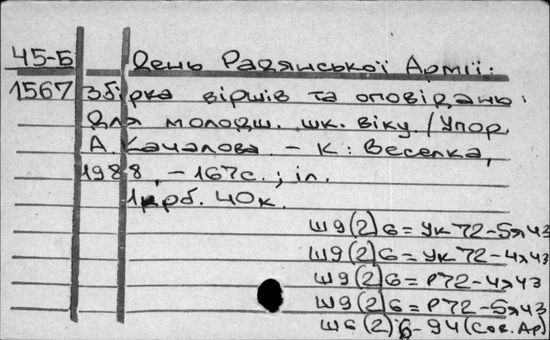 45-Б День Радянської Армії:
1567 Збірка віршів та оповідань
для молодш. шк. віку / Упор.
А. Качалова. - К: Веселка,
1988. - 167с.; іл.
1крб. 40к.
Ш9(2)6=Ук72-5я43
Ш9(2)6=Ук72-4я43
Ш9(2)6=Р72-4я43
Ш9(2)6=Р72-5я43
Ш6(2)6-94(Сов.Ар)